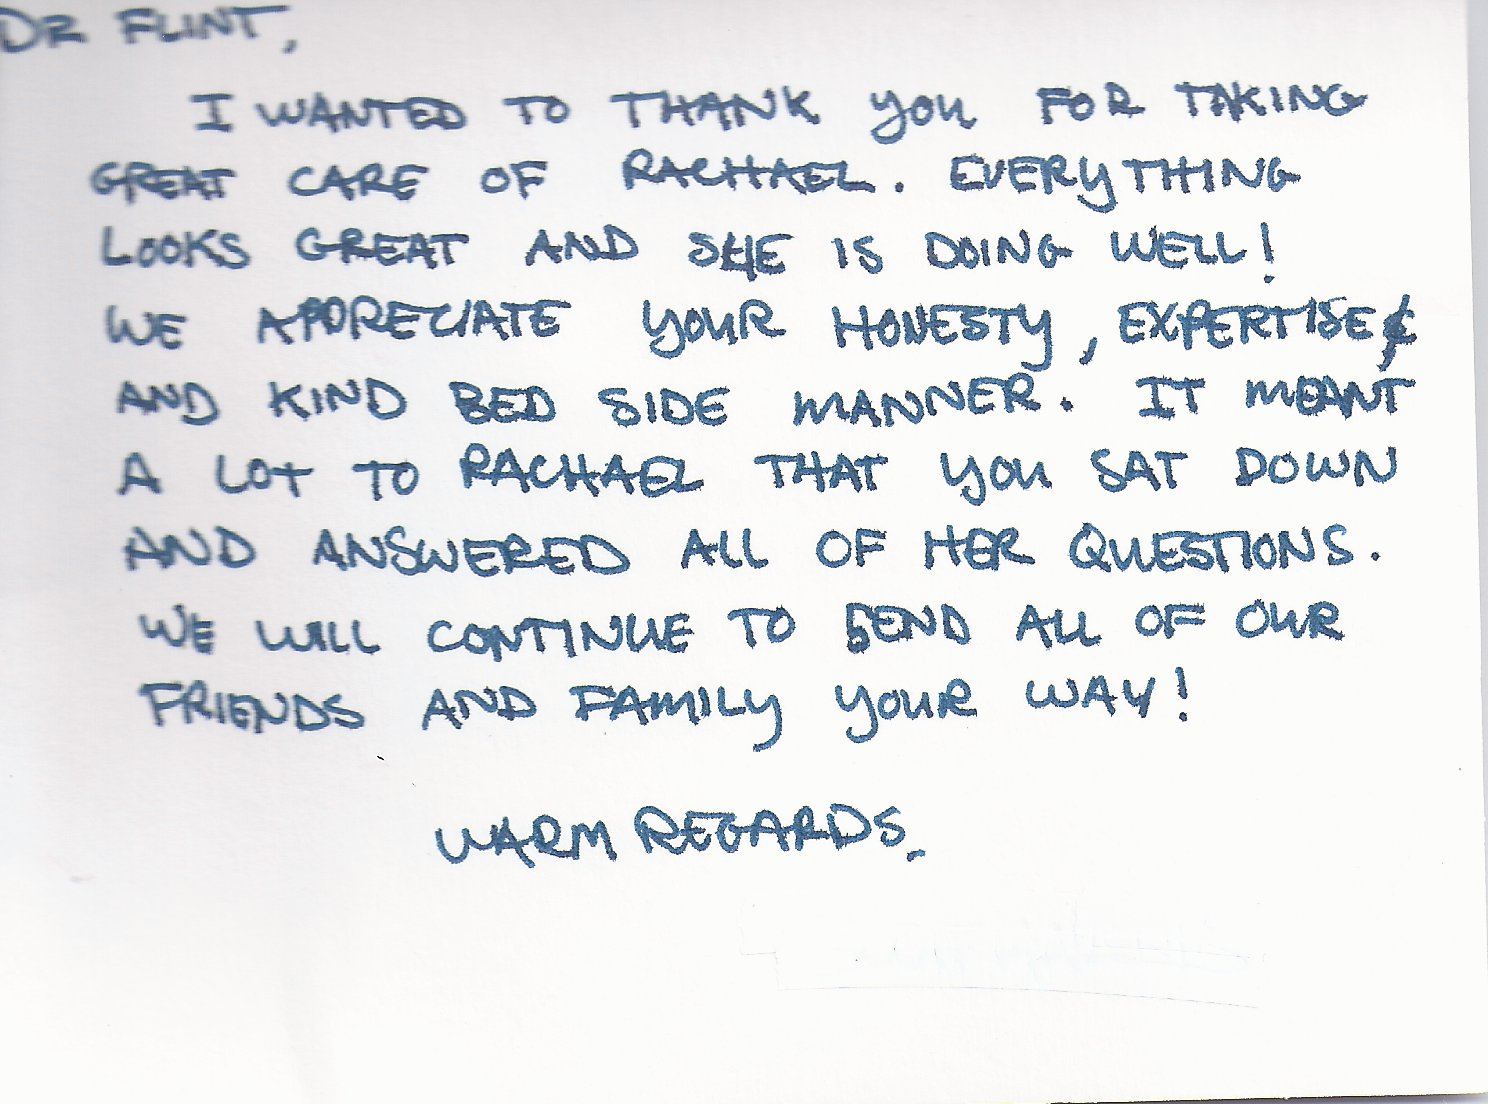 DR FLINT,
I WANTED TO THANK YOU FOR TAKING
GREAT CARE OF RACHAEL. EVERYTHING
LOOKS GREAT AND SHE IS DOING WELL!
WE APPRECIATE YOUR HONESTY, EXPERTISE &
AND KIND BED SIDE MANNER. IT MEANT
A LOT TO RACHAEL THAT YOU SAT DOWN
AND ANSWERED ALL OF HER QUESTIONS.
WE WILL CONTINUE TO SEND ALL OF OUR
FRIENDS AND FAMILY YOUR WAY!
WARM REGARDS,